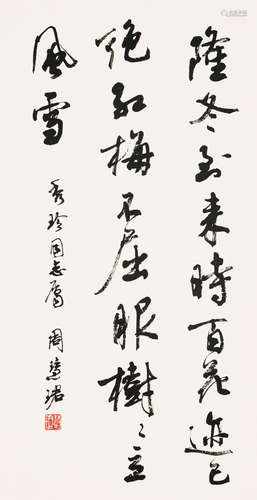 隆冬到来時百花迹已
绝红梅不屈服樹樹立
風雪
秀珍同志属 周慧珺